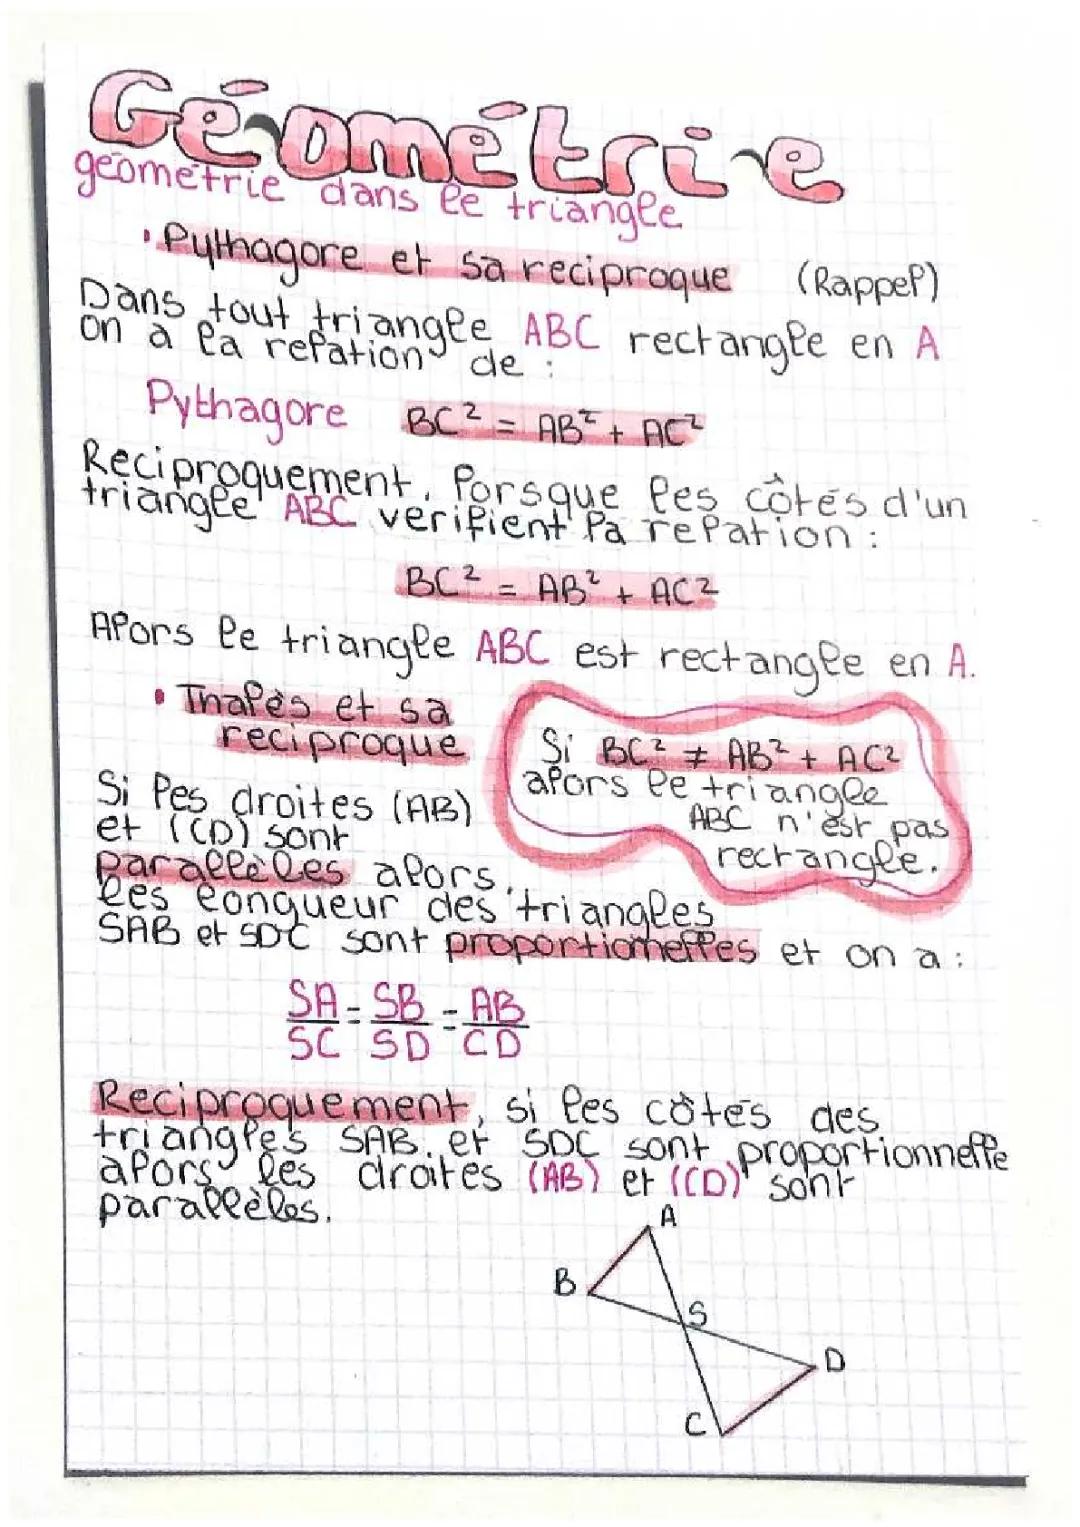 Géométrie
géométrie dans le triangle
• Pythagore et sa reciproque (Rappel)
Dans tout triangle ABC rectangle en A
on a la relation de :
Pythagore BC² = AB² + AC²
Reciproquement, lorsque les côtés d'un
triangle ABC verifient la relation :
BC² = AB² + AC²
Alors le triangle ABC est rectangle en A.
• Thalès et sa
reciproque
Si BC² ≠ AB² + AC²
alors le triangle
ABC n'est pas
rectangle.
Si les droites (AB)
et (CD) sont
parallèles alors,
les longueur des triangles
SAB et SDC sont proportionnelles et on a :
SA = SB = AB
SC SD CD
Reciproquement, si les côtés des
triangles SAB et SDC sont proportionnelle
alors les droites (AB) et (CD) sont
parallèles.
A
B
S
D
C